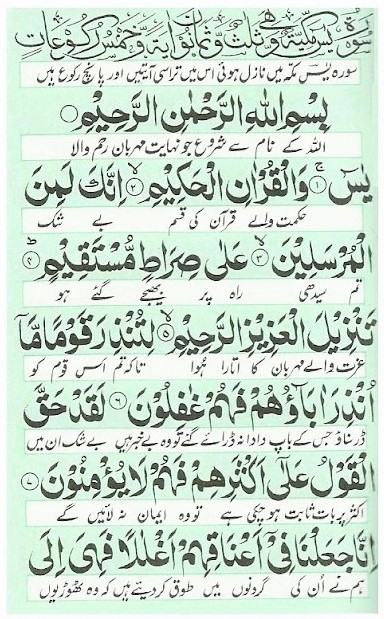 سورة يس مكية وهي ثلث وثمانون اية وخمس ركوعات
سورہ یسٓ مکہ میں نازل ہوئی اس میں تراسی آیتیں اور پانچ رکوع ہیں
بِسْمِ اللّٰهِ الرَّحْمٰنِ الرَّحِيْمِ
اللہ کے نام سے شروع جو نہایت مہربان رحم والا
يٰسٓ ۚ﴿۱﴾ وَالْقُرْاٰنِ الْحَكِيْمِ ۙ﴿۲﴾ اِنَّكَ لَمِنَ
حکمت والے قرآن کی قسم بے شک
الْمُرْسَلِيْنَ ۙ﴿۳﴾ عَلٰى صِرَاطٍ مُّسْتَقِيْمٍ ؕ﴿۴﴾
تم سیدھی راہ پر بھیجے گئے ہو
تَنْزِيْلَ الْعَزِيْزِ الرَّحِيْمِ ۙ﴿۵﴾ لِتُنْذِرَ قَوْمًا مَّاۤ
عزت والے مہربان کا اتارا ہوا تاکہ تم اس قوم کو
اُنْذِرَ اٰبَآؤُهُمْ فَهُمْ غٰفِلُوْنَ ﴿۶﴾ لَقَدْ حَقَّ
ڈر سناؤ جس کے باپ دادا نہ ڈرائے گئے تو وہ بے خبر ہیں بے شک ان میں
الْقَوْلُ عَلٰٓى اَكْثَرِهِمْ فَهُمْ لَا يُؤْمِنُوْنَ ﴿۷﴾
اکثر پر بات ثابت ہو چکی ہے تو وہ ایمان نہ لائیں گے
اِنَّا جَعَلْنَا فِىْٓ اَعْنَاقِهِمْ اَغْلٰلًا فَهِىَ اِلَى
ہم نے ان کی گردنوں میں طوق کر دیئے ہیں کہ وہ ٹھوڑیوں